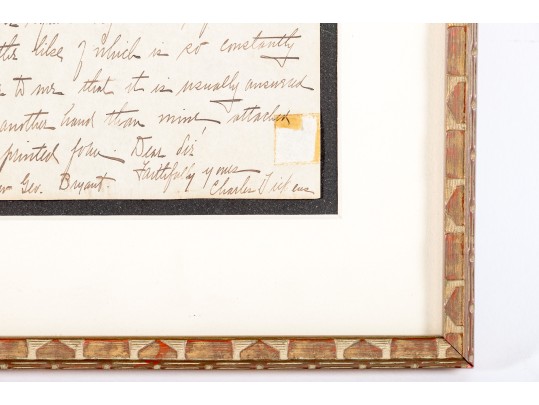 the like of which is so constantly
to me that it is usually answered
another hand than mine attached
printed form. Dear Sir
Faithfully yours
Geo. Bryant. Charles Dickens